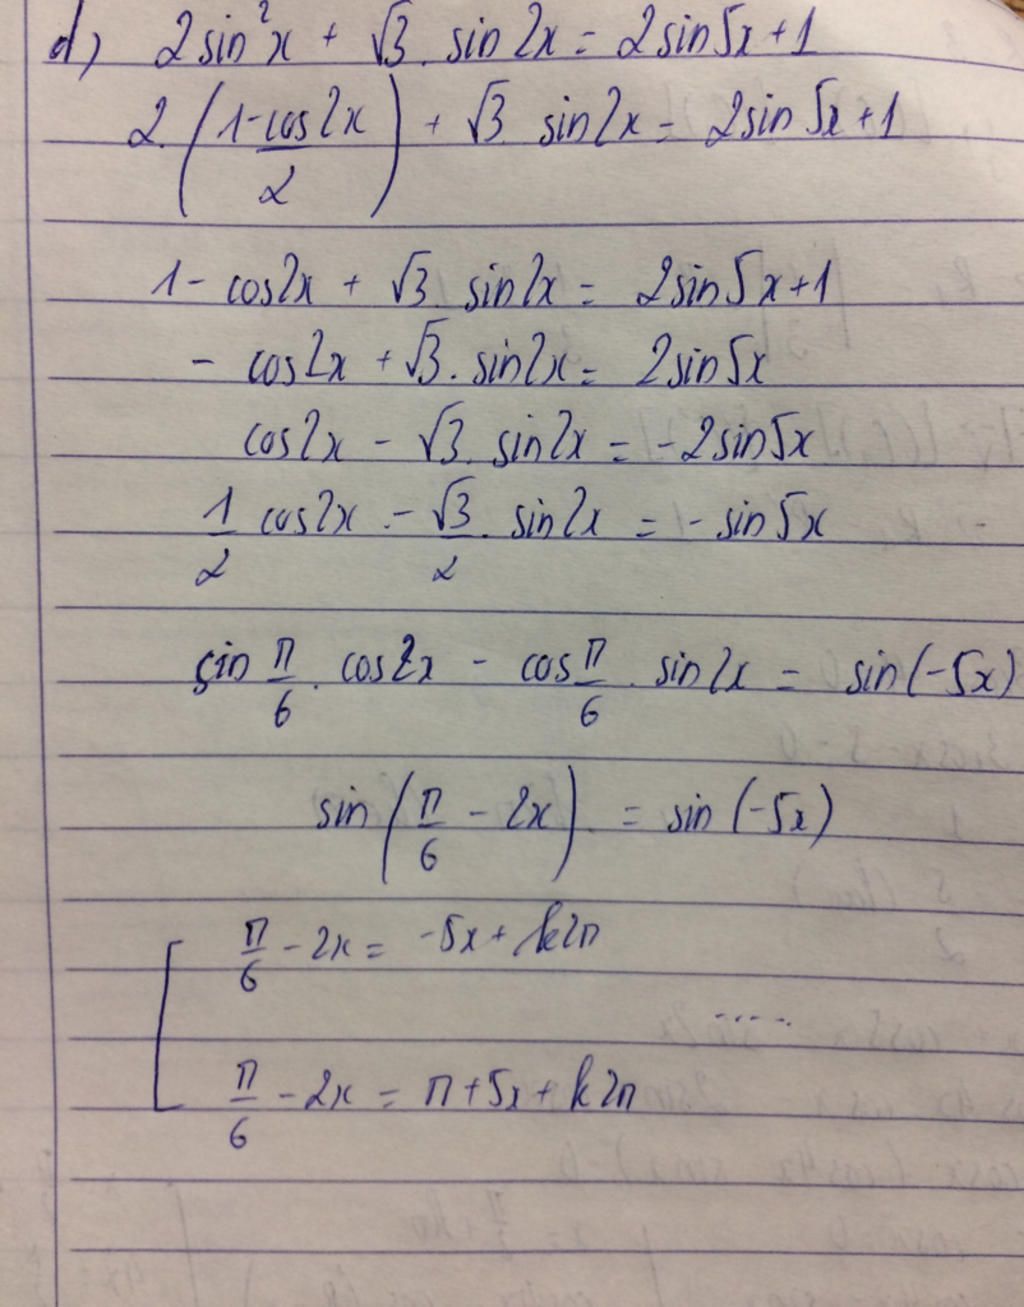 d) 2sin²x + √3. sin2x = 2sin5x+1
2.(1-cos2x/2) + √3 sin2x = 2sin5x+1
1- cos2x + √3. sin2x = 2sin5x+1
- cos2x + √3. sin2x = 2sin5x
cos2x - √3. sin2x = -2sin5x
1/2 cos2x - √3/2. sin2x = - sin5x
sin π/6. cos2x - cos π/6. sin2x = sin(-5x)
sin(π/6 - 2x) = sin(-5x)
π/6 - 2x = -5x + k2π
.....
π/6 - 2x = π+5x+k2π